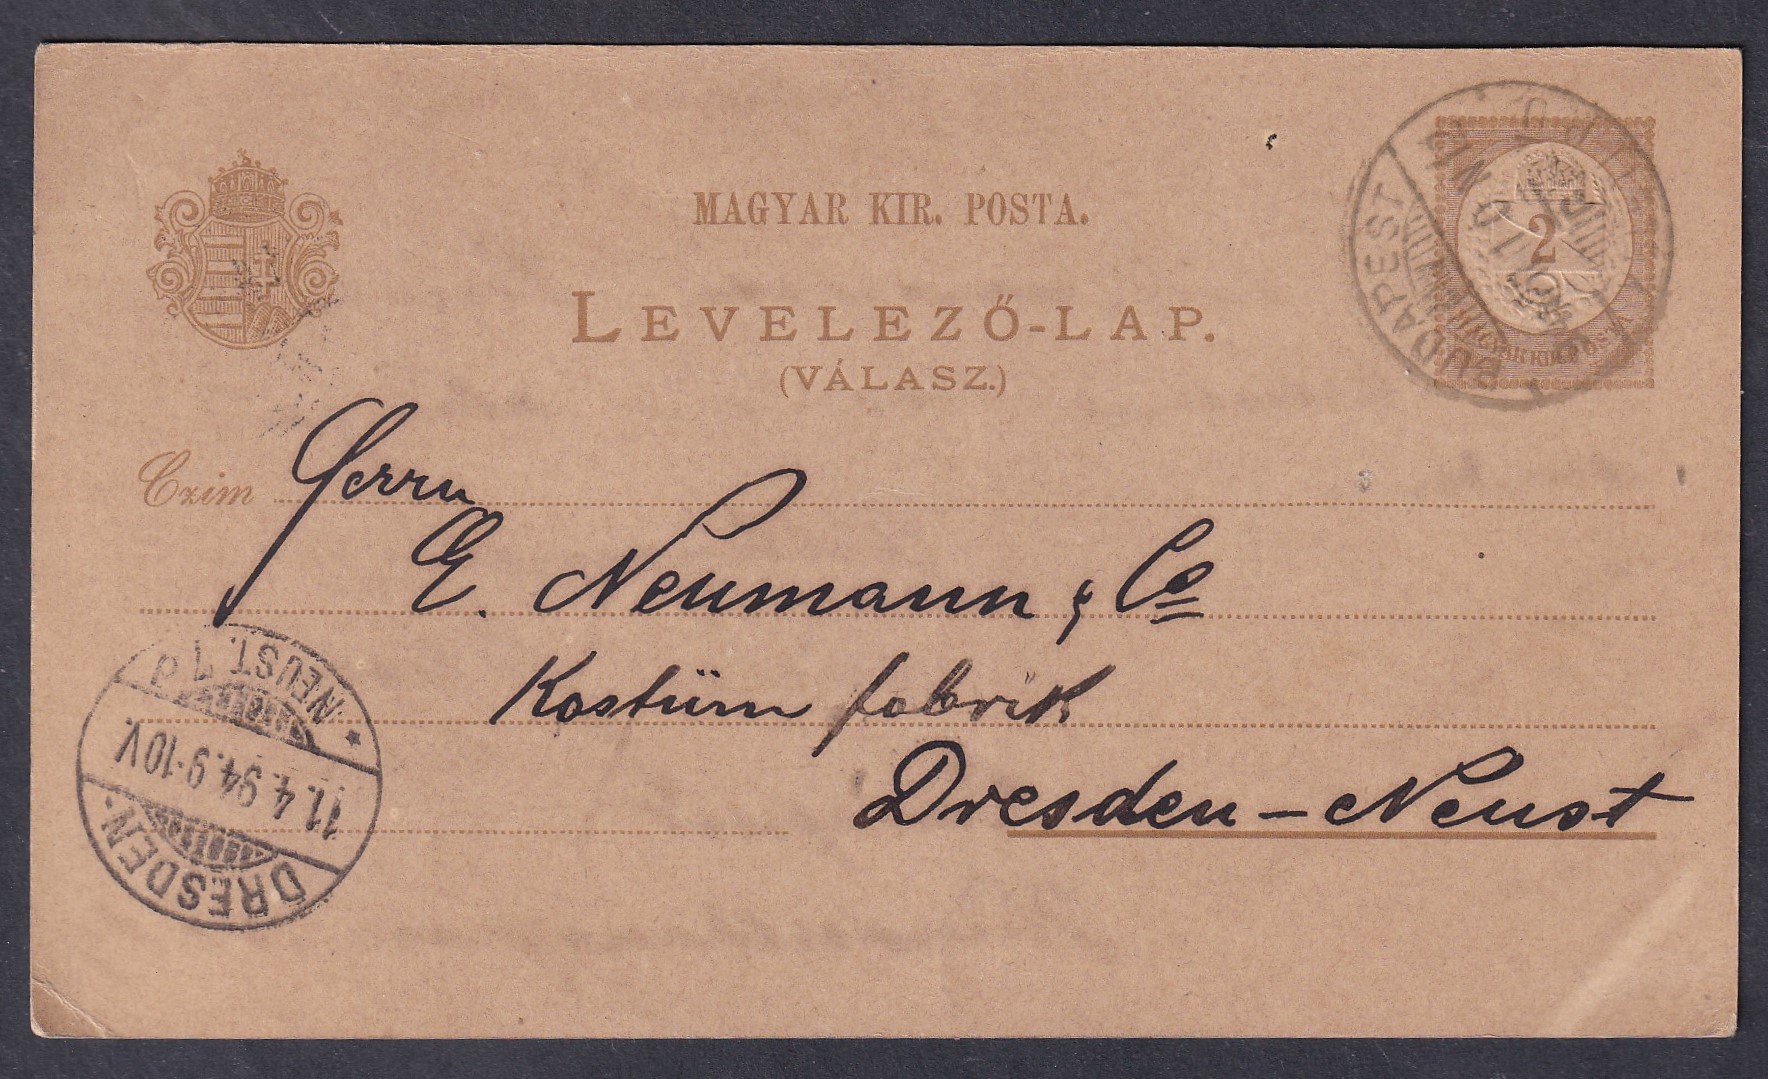 MAGYAR KIR. POSTA.
LEVELEZŐ-LAP.
(VÁLASZ.)
2
MAGYAR KIR. POSTA
BUDAPEST
Czim
Herrn
E. Neumann & Co
Kostüm fabrik
Dresden-Neust
* NEUST. 1 d
11.4.94.9-10V.
DRESDEN.